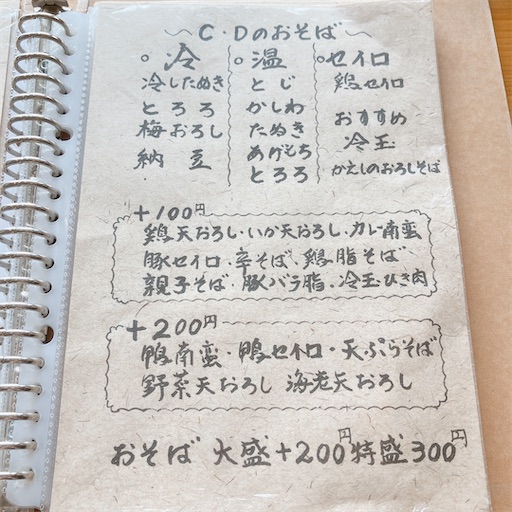 C・Dのおそば
○冷
冷したぬき
とろろ
梅おろし
納豆
○温
とじ
かしわ
たぬき
あげもち
とろろ
○セイロ
鶏セイロ
おすすめ
冷玉
かえしのおろしそば
+100円
鶏天おろし・いか天おろし・カレー南蛮
豚セイロ・辛そば・鶏脂そば
親子そば・豚バラ脂・冷玉ひき肉
+200円
鴨南蛮・鴨セイロ・天ぷらそば
野菜天おろし 海老天おろし
おそば 大盛+200円 特盛300円